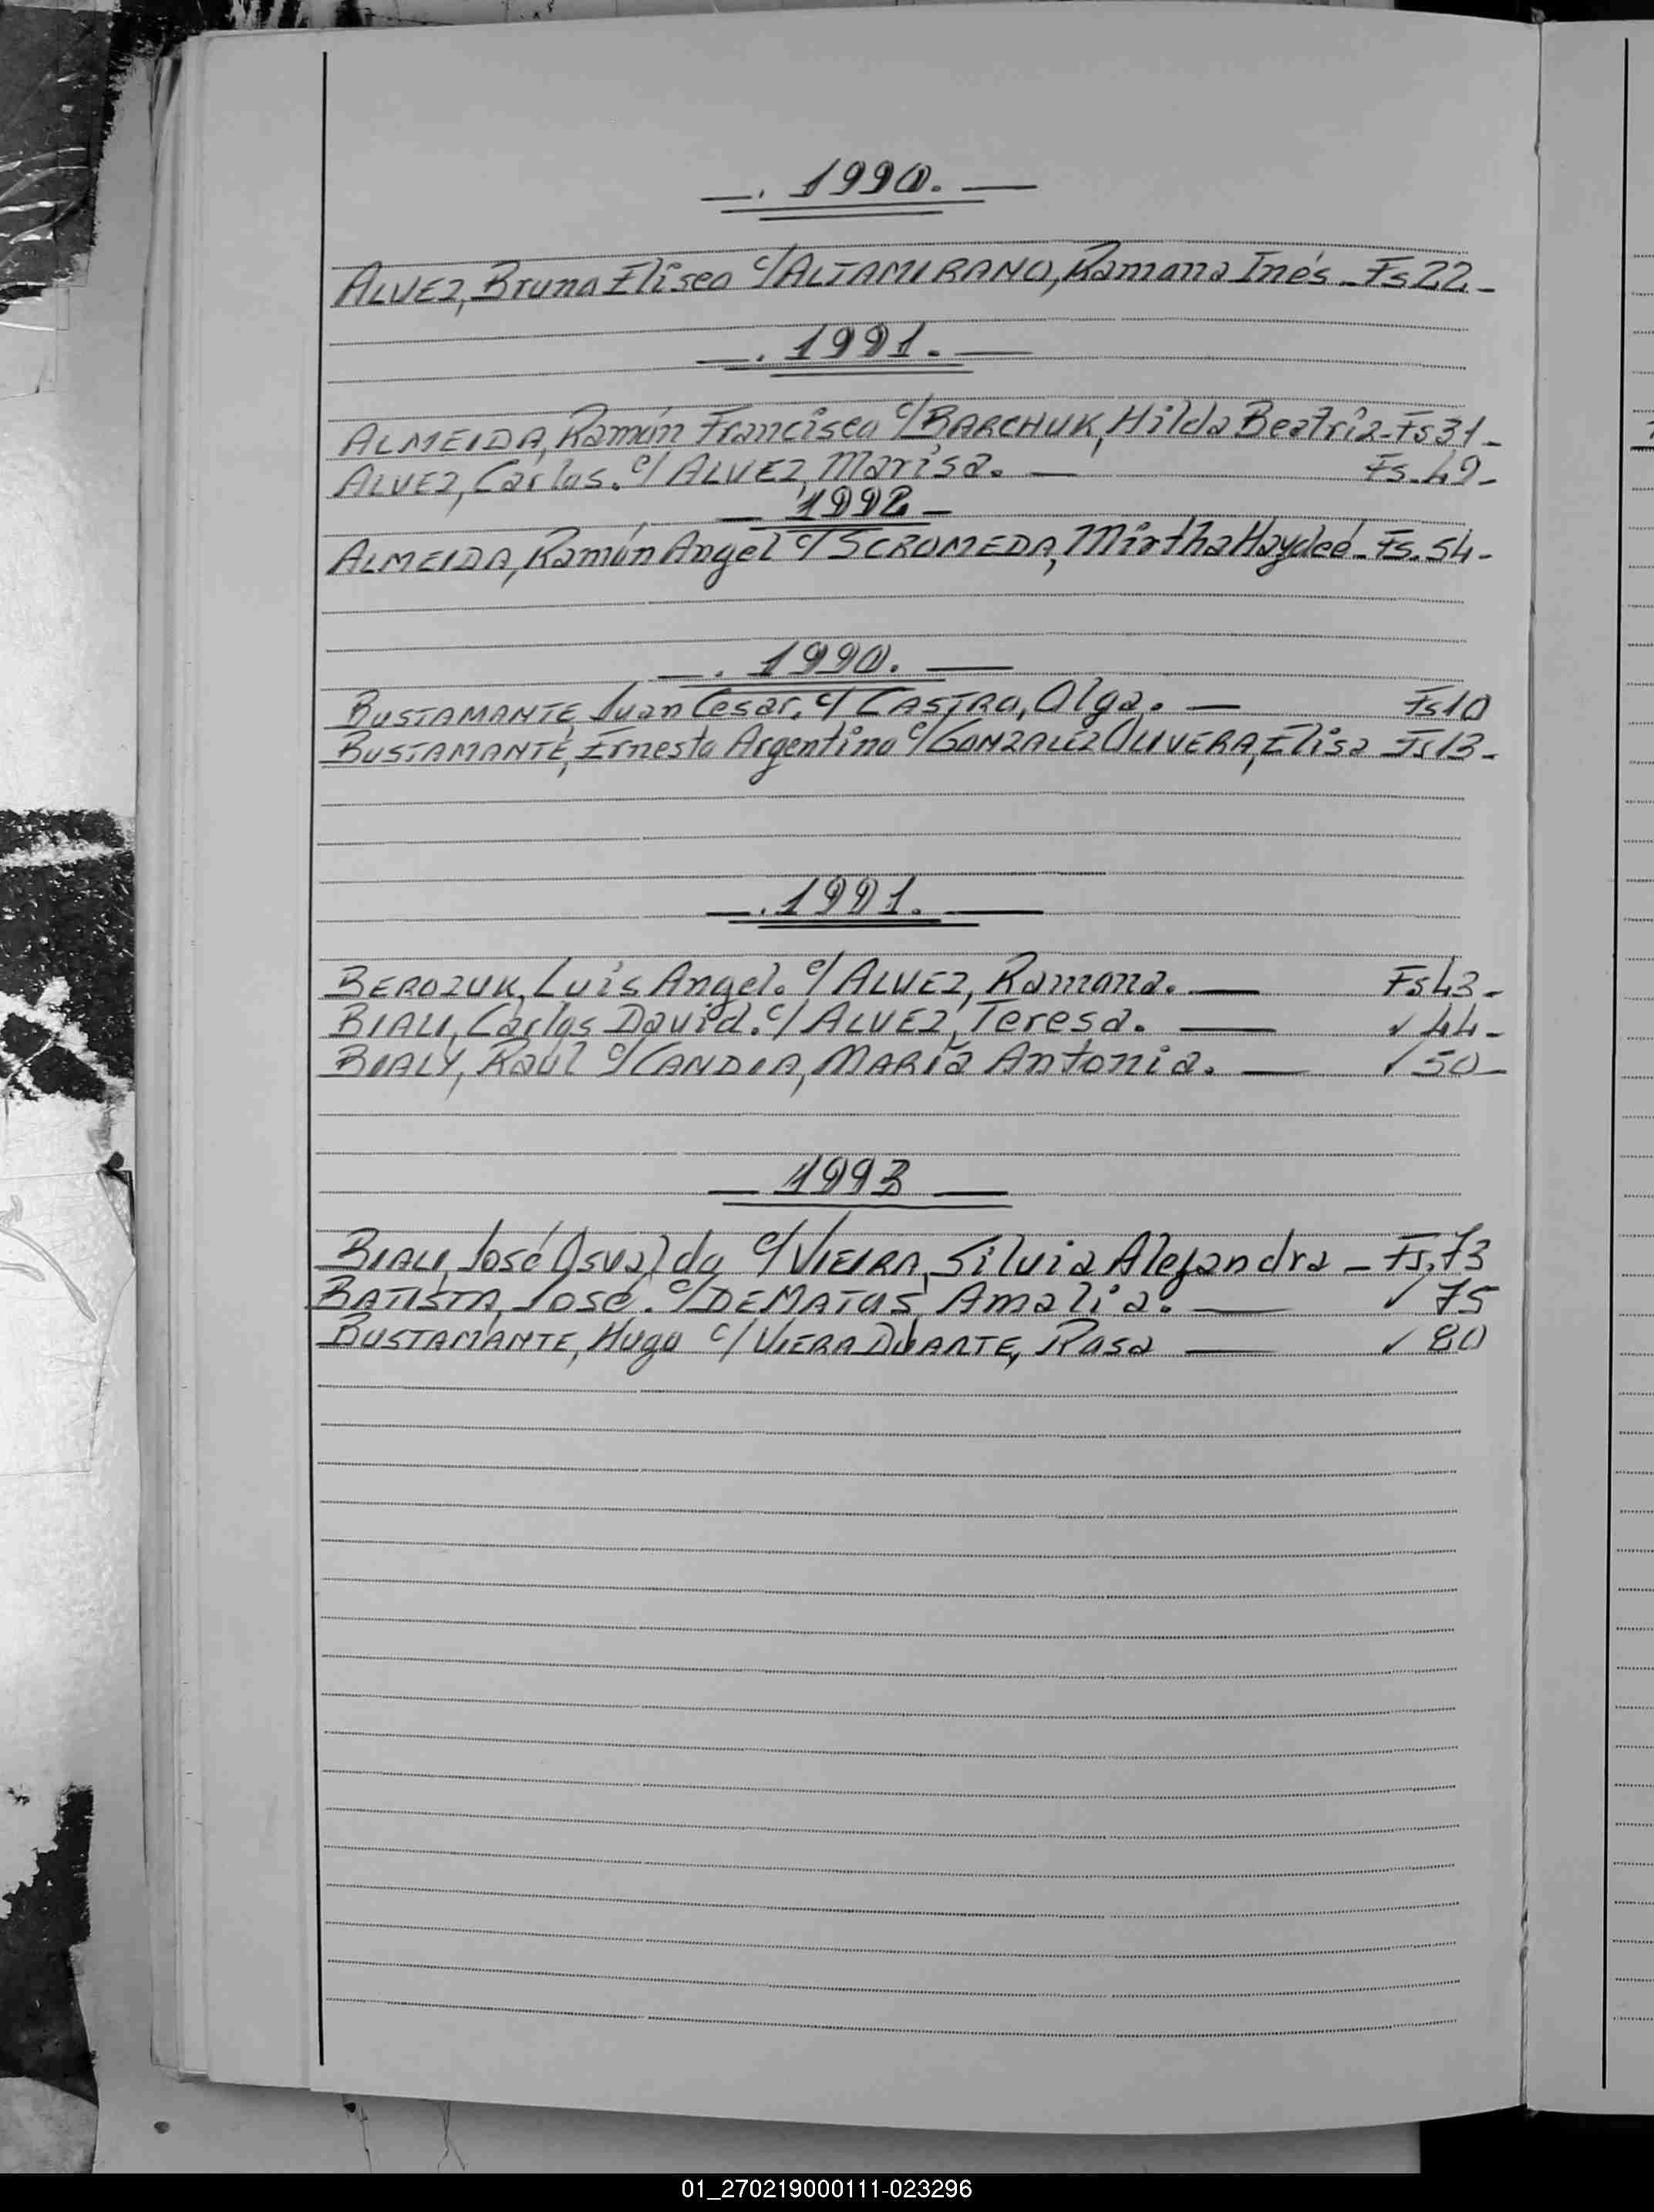 —. 1990. —
ALVEZ, Bruno Eliseo c/ALTAMIRANO, Ramona Inés - Fs 22 -
—. 1991. —
ALMEIDA, Ramón Francisco c/BARCHUK, Hilda Beatriz - Fs 31 -
ALVEZ, Carlos. c/ ALVEZ, Marisa. — Fs. 49 -
— 1992 —
ALMEIDA, Ramón Angel c/ SCROMEDA, Mirtha Haydeé - Fs. 54 -
—. 1990. —
BUSTAMANTE, Juan Cesar. c/ CASTRO, Olga. — Fs 10
BUSTAMANTE, Ernesto Argentino c/GONZALEZ OLIVERA, Elisa Fs 13 -
—. 1991. —
BEROZUK, Luis Angel. c/ ALVEZ, Ramona. — Fs 43 -
BIALI, Carlos David. c/ ALVEZ, Teresa. — ✓ 44 -
BIALY, Raúl c/CANDIA, MARÍA Antonia. — ✓ 50 -
— 1993 —
BIALI, José Osvaldo c/ VIEIRA, Silvia Alejandra - Fs. 73
BATISTA, José. c/DEMATOS, Amalia. — ✓ 75
BUSTAMANTE, Hugo c/ VIERA DUARTE, Rosa — ✓ 80
01_270219000111-023296